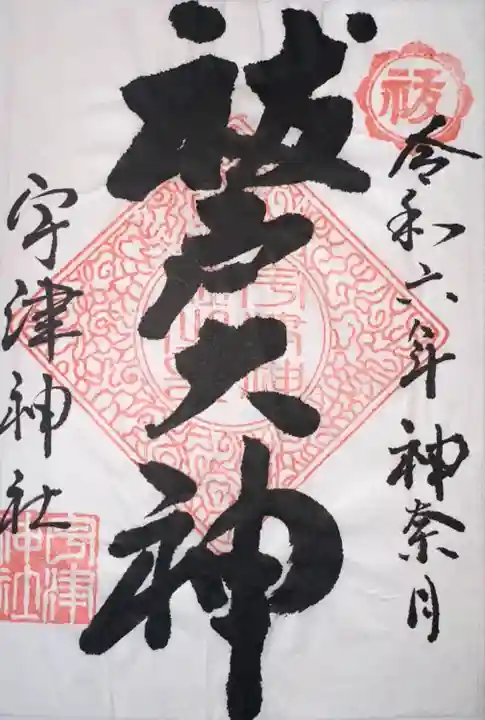 祓
令和六年神奈月
祓戸大神
宇津神社
宇津
神社